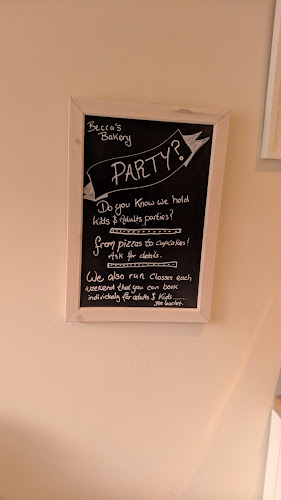 Becca's
Bakery
PARTY?
Do you know we hold
kids & Adults parties?
from pizzas to cupcakes!
Ask for details.
We also run classes each
weekend that you can book
individually for adults & Kids.......
see leaflet.